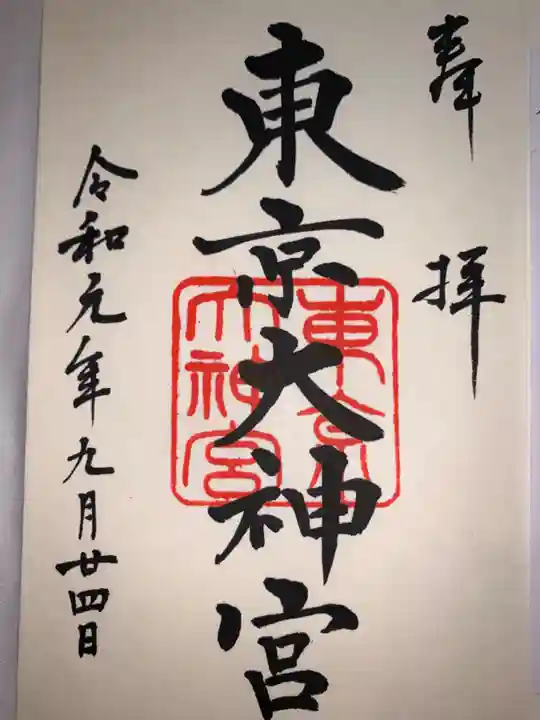 奉拝
東京大神宮
東京
大神宮
令和元年九月廿四日